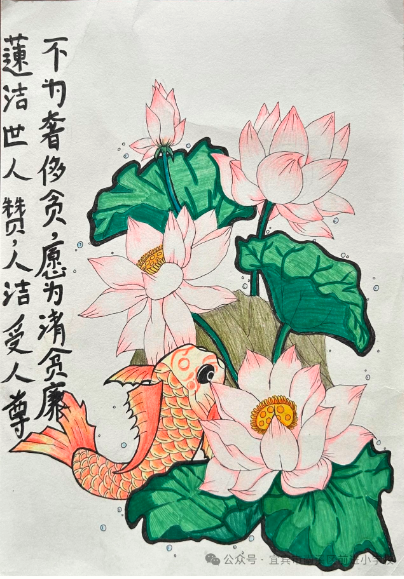 不为奢侈贪,愿为清贫廉
蓮洁世人赞,人洁受人尊
公众号 · 宜宾市